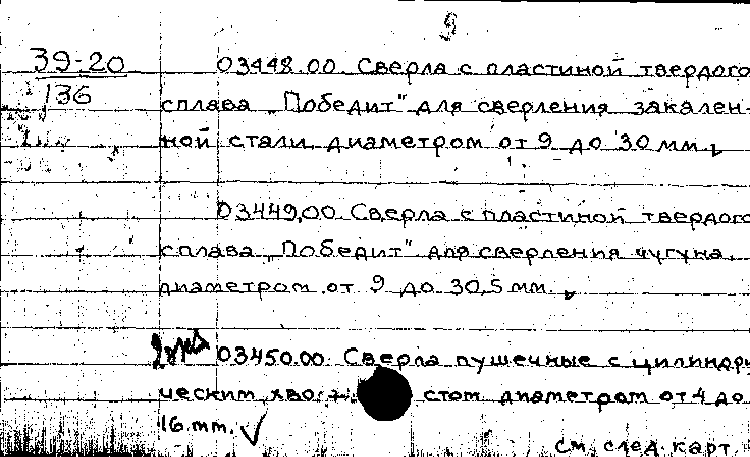 39-20
136
03448.00. Сверла с пластиной твердого
сплава „Победит" для сверления закален-
ной стали, диаметром от 9 до 30 мм.
03449,00. Сверла с пластиной твердого
сплава „Победит" для сверления чугуна,
диаметром от 9 до 30,5 мм.
03450.00. Сверла пушечные с цилиндри
ческим хво стом диаметром от 4 до
16.mm.
см. след. карт.